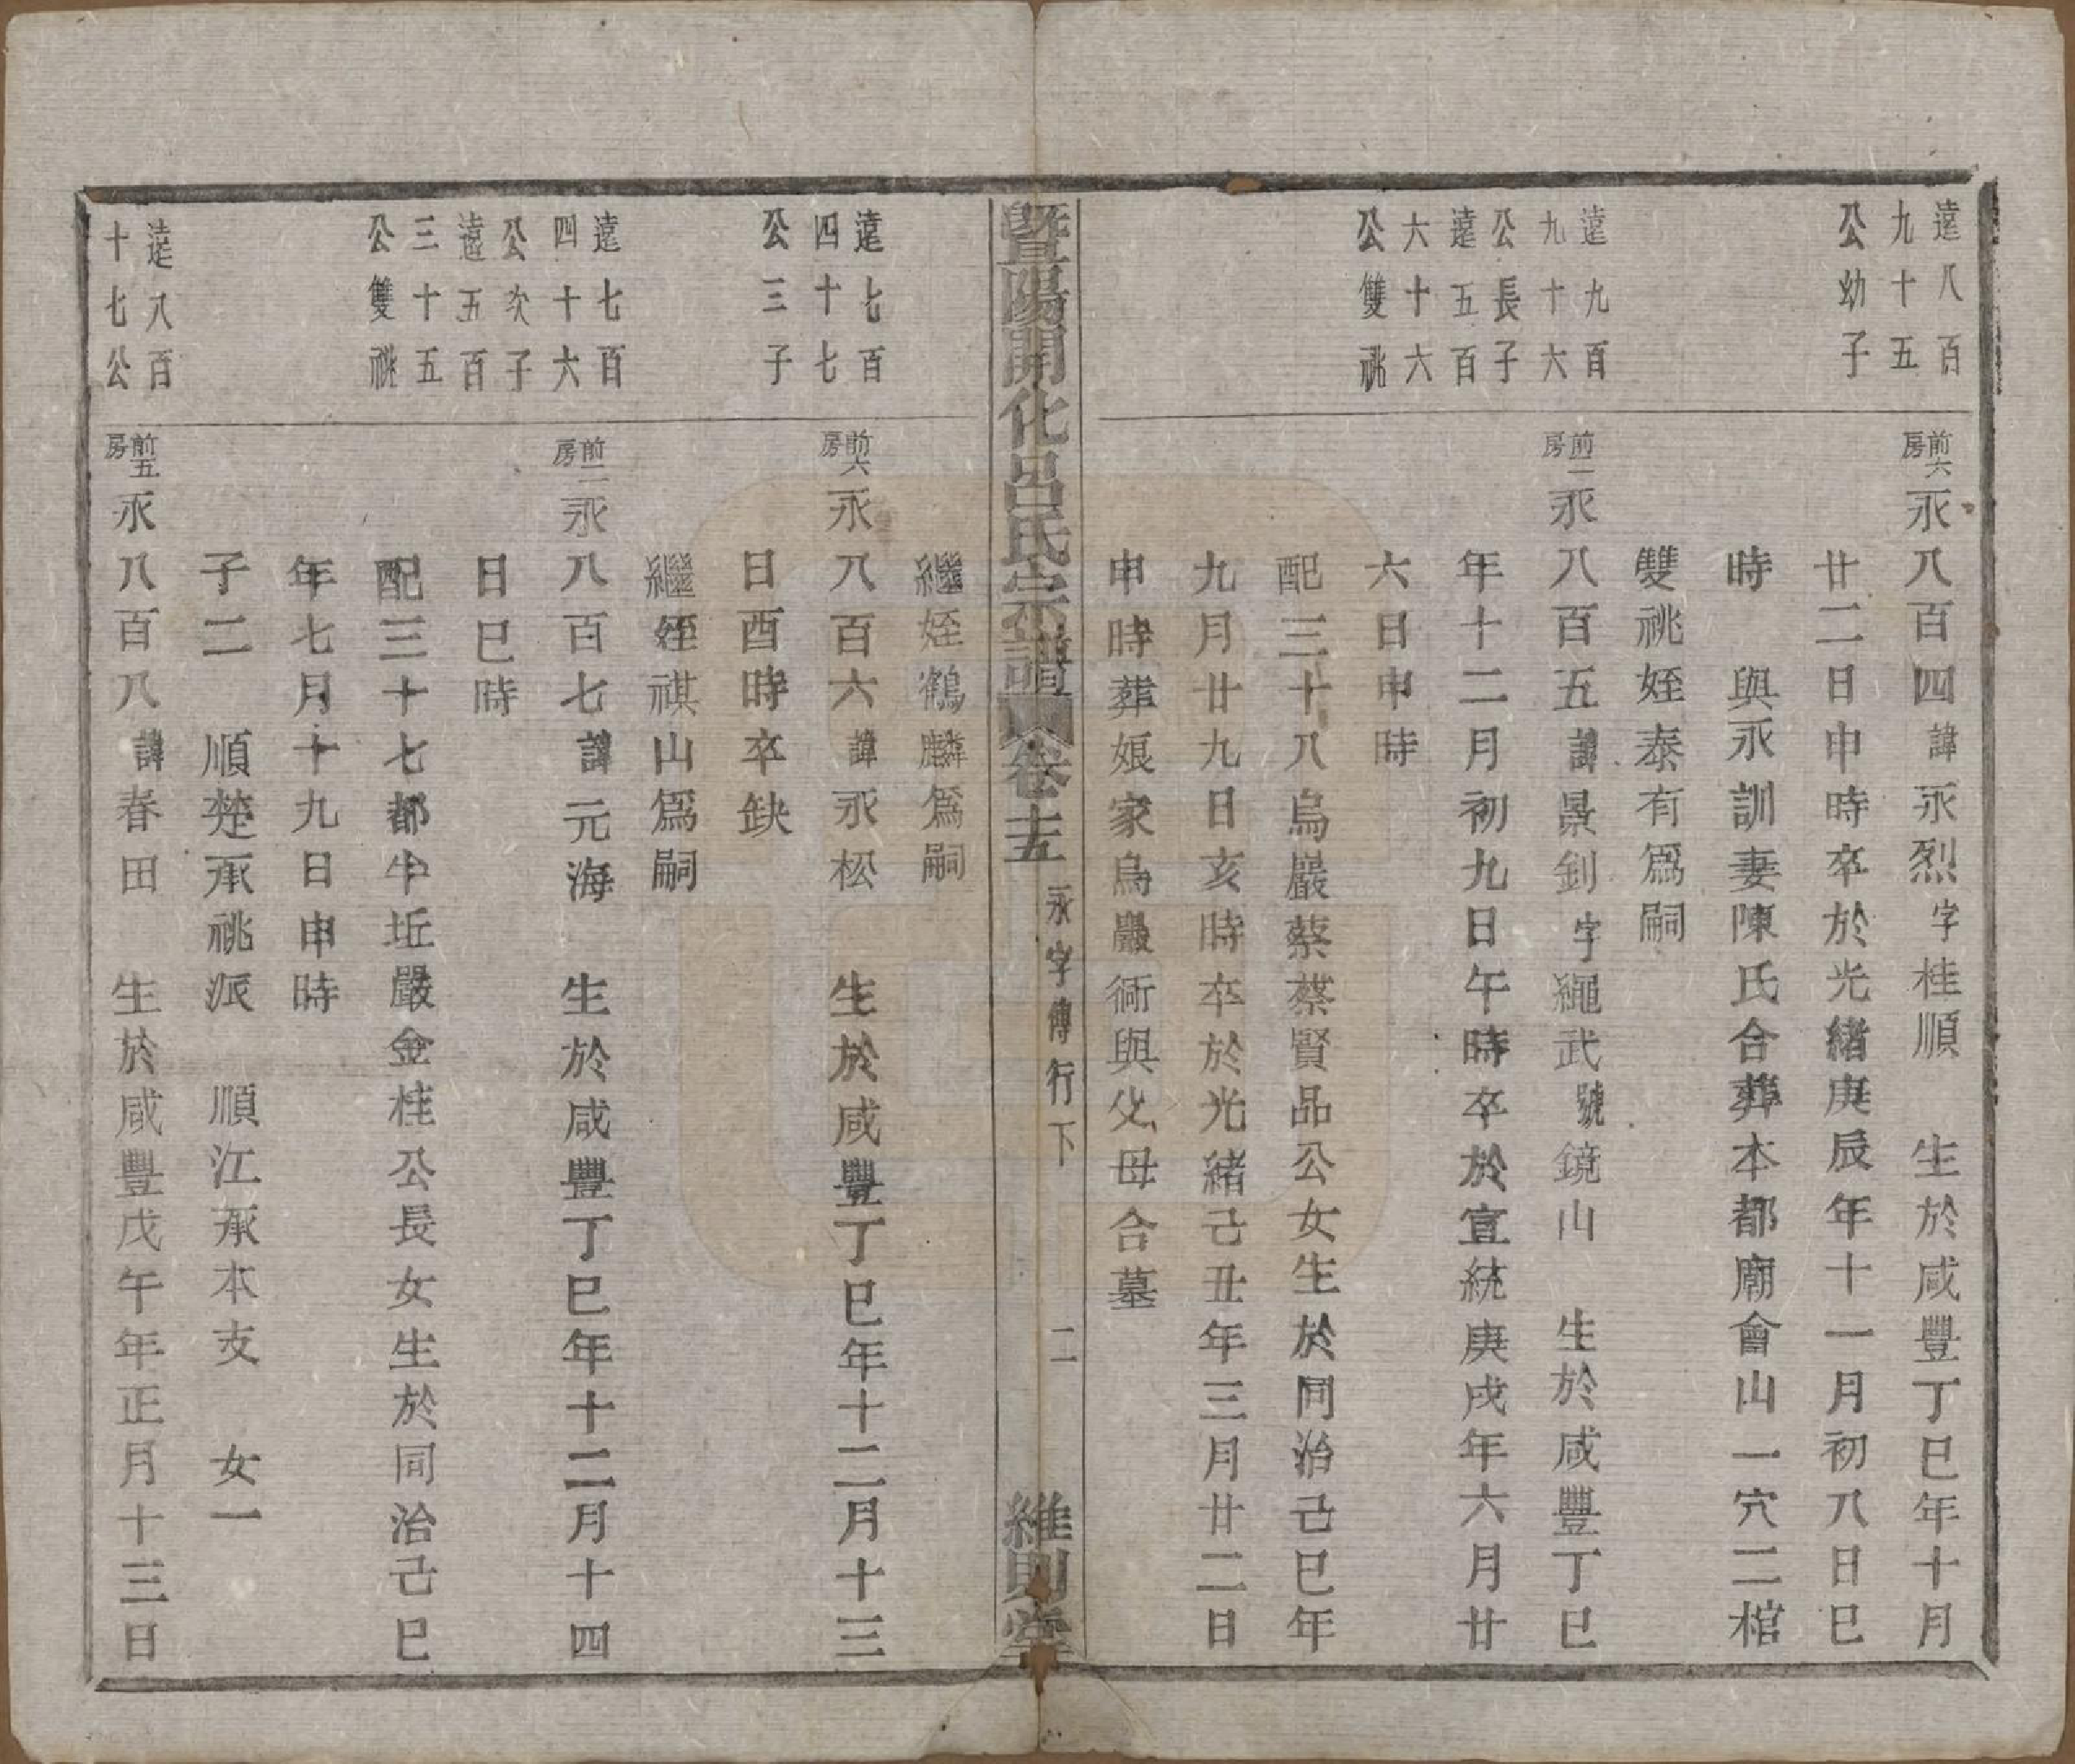 遠八百
九十五
公幼子
前六房永八百四諱永烈字桂順 生於咸豐丁巳年十月
廿二日申時卒於光緒庚辰年十一月初八日巳
時 與永訓妻陳氏合葬本都廟會山一穴二棺
雙祧姪泰有爲嗣
遠九百
九十六
公長子
遠五百
六十六
公雙祧
前一房永八百五諱景釗字繩武號鏡山 生於咸豐丁巳
年十二月初九日午時卒於宣統庚戌年六月廿
六日申時
配三十八烏巖蔡蔡賢品公女生於同治己巳年
九月廿九日亥時卒於光緒己丑年三月廿二日
申時葬娘家烏巖衕與父母合墓
暨陽開化呂氏宗譜 卷十五 永字傳行下 二 維則堂
繼姪鶴麟爲嗣
遠七百
四十七
公三子
前六房永八百六諱永松 生於咸豐丁巳年十二月十三
日酉時卒缺
繼姪祺山爲嗣
遠七百
四十六
公次子
遠五百
三十五
公雙祧
前二房永八百七諱元海 生於咸豐丁巳年十二月十四
日巳時
配三十七都牛坵嚴金桂公長女生於同治己巳
年七月十九日申時
子二 順楚承祧派 順江承本支 女一
遠八百
十七公
前五房永八百八諱春田 生於咸豐戊午年正月十三日